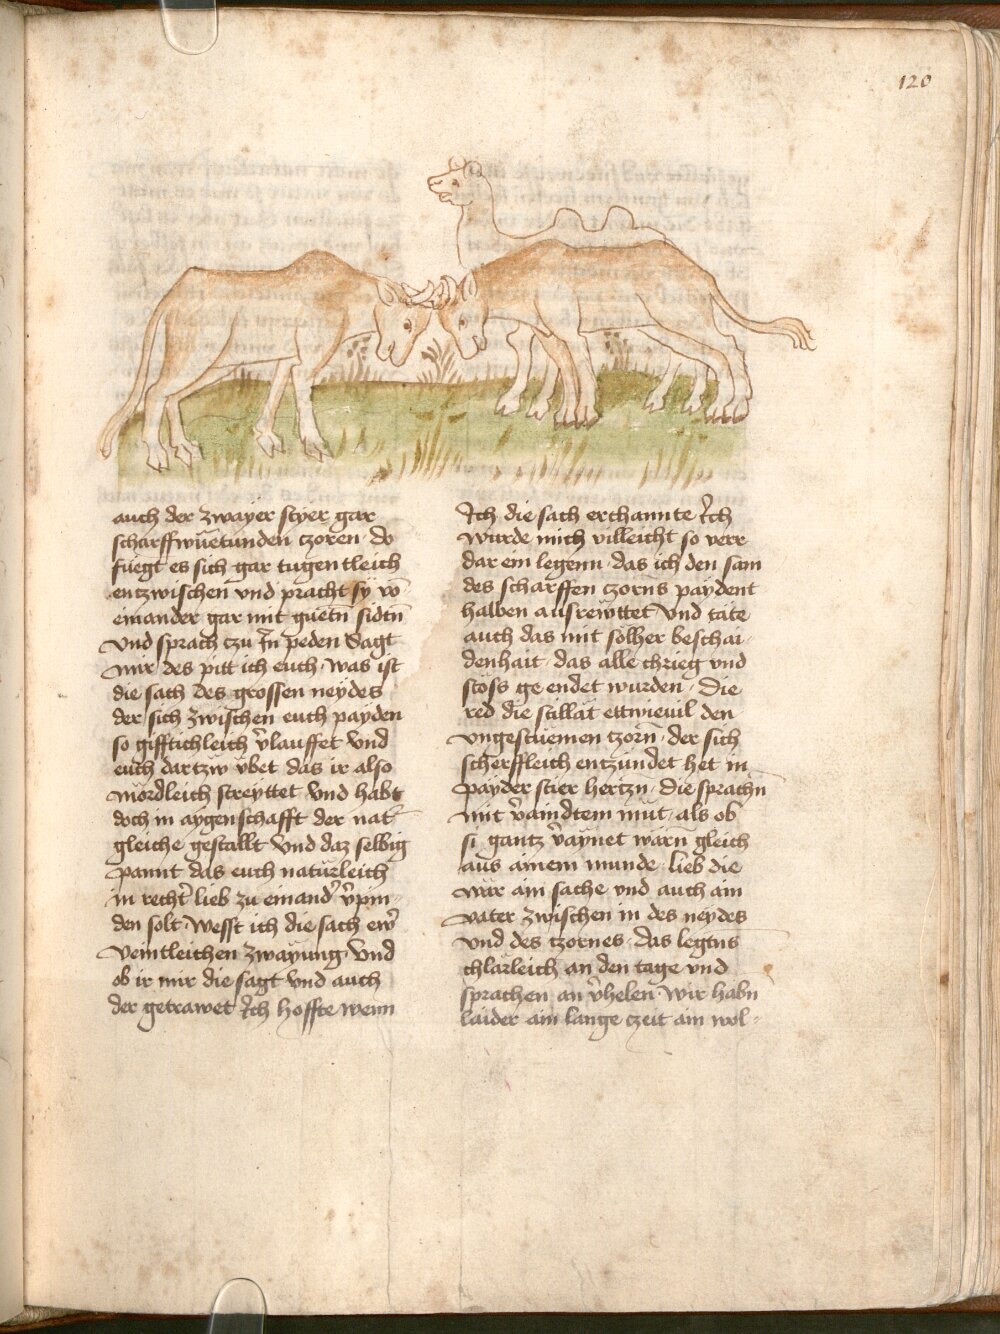 120
auch der zwayer styer gar
scharffwüetunden czoren do
fuegt es sich gar tugentleich
enczwischen vnd pracht sy vō
einander gar mit guetn̄ sidtn̄
vnd sprach czu In̄ peden Sagt
mir des pitt ich euch was ist
die sach des grossen neydes
der sich zwischen euch payden
so gifftichleich v̓lauffet vnd
euch dartzw v̈bet das ir also
mördleich streyttet vnd habt
doch in aygenschafft der nat̓
gleiche gestallt vnd daz selbig
pannt das euch natürleich
in recht̓ lieb zu einand̓ v̓pin
den solt wesst ich die sach ew̓
veintleichen zwaÿung vnd
ob ir mir die sagt vnd auch
der getrawet Ich hoffte wenn
Ich die sach erchannte Ich
wurde mich villeicht so verr
dar ein legenn das ich den sam
des scharffen czorns paydent
halben ausrewttet vnd täte
auch das mit sölher beschai
denhait das alle chrieg vnd
stöss geendet wurden Die
red die stillät ettwievil den
vngestüemen czorn̄ der sich
scherffleich entzündet het in
payder stier hertzn̄ die sprachn̄
mit v̓aindtem müt als ob
si gantz v̓aynet warn̄ gleich
aus ainem munde lieb die
wär ain sache vnd auch ain
vater zwischen in des neydes
vnd des czornes das legtns
chlärleich an den tage vnd
sprachen an v̓helen Wir habn̄
laider ain lange czeit ain wol